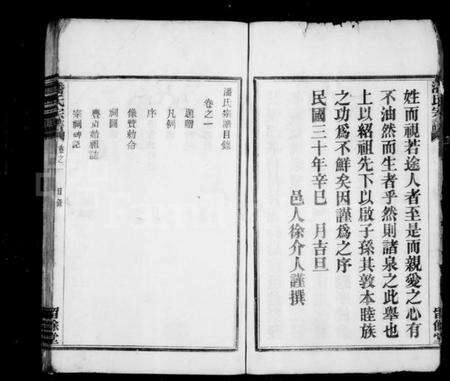 姓而視若途人者至是而親愛之心有
不油然而生者乎然則諸泉之此舉也
上以紹祖先下以啟子孫其敦本睦族
之功為不鮮矣因謹為之序
民國三十年辛巳 月吉旦
邑人徐介人謹撰
潘氏宗譜目錄
卷之一
題贈
凡例
序
像贊勅命
祠圖
宗祠碑記
潘氏宗譜
卷之一
目錄